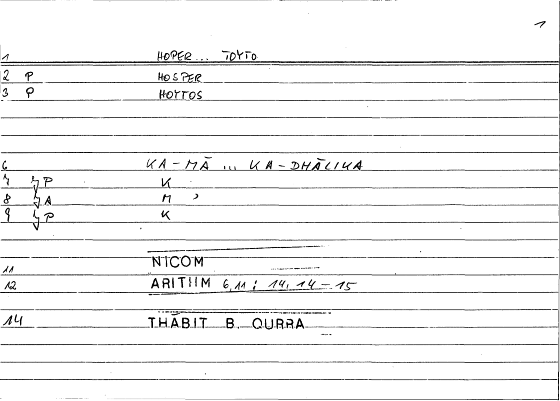 1
1 HOPER... TOYTO
2 P HOSPER
3 P HOYTOS
6 KA-MĀ ... KA-DHĀLIKA
7 P K
8 A M ʾ
9 P K
11 NICOM
12 ARITHM 6,11 ; 14,14-15
14 THABIT B. QURRA